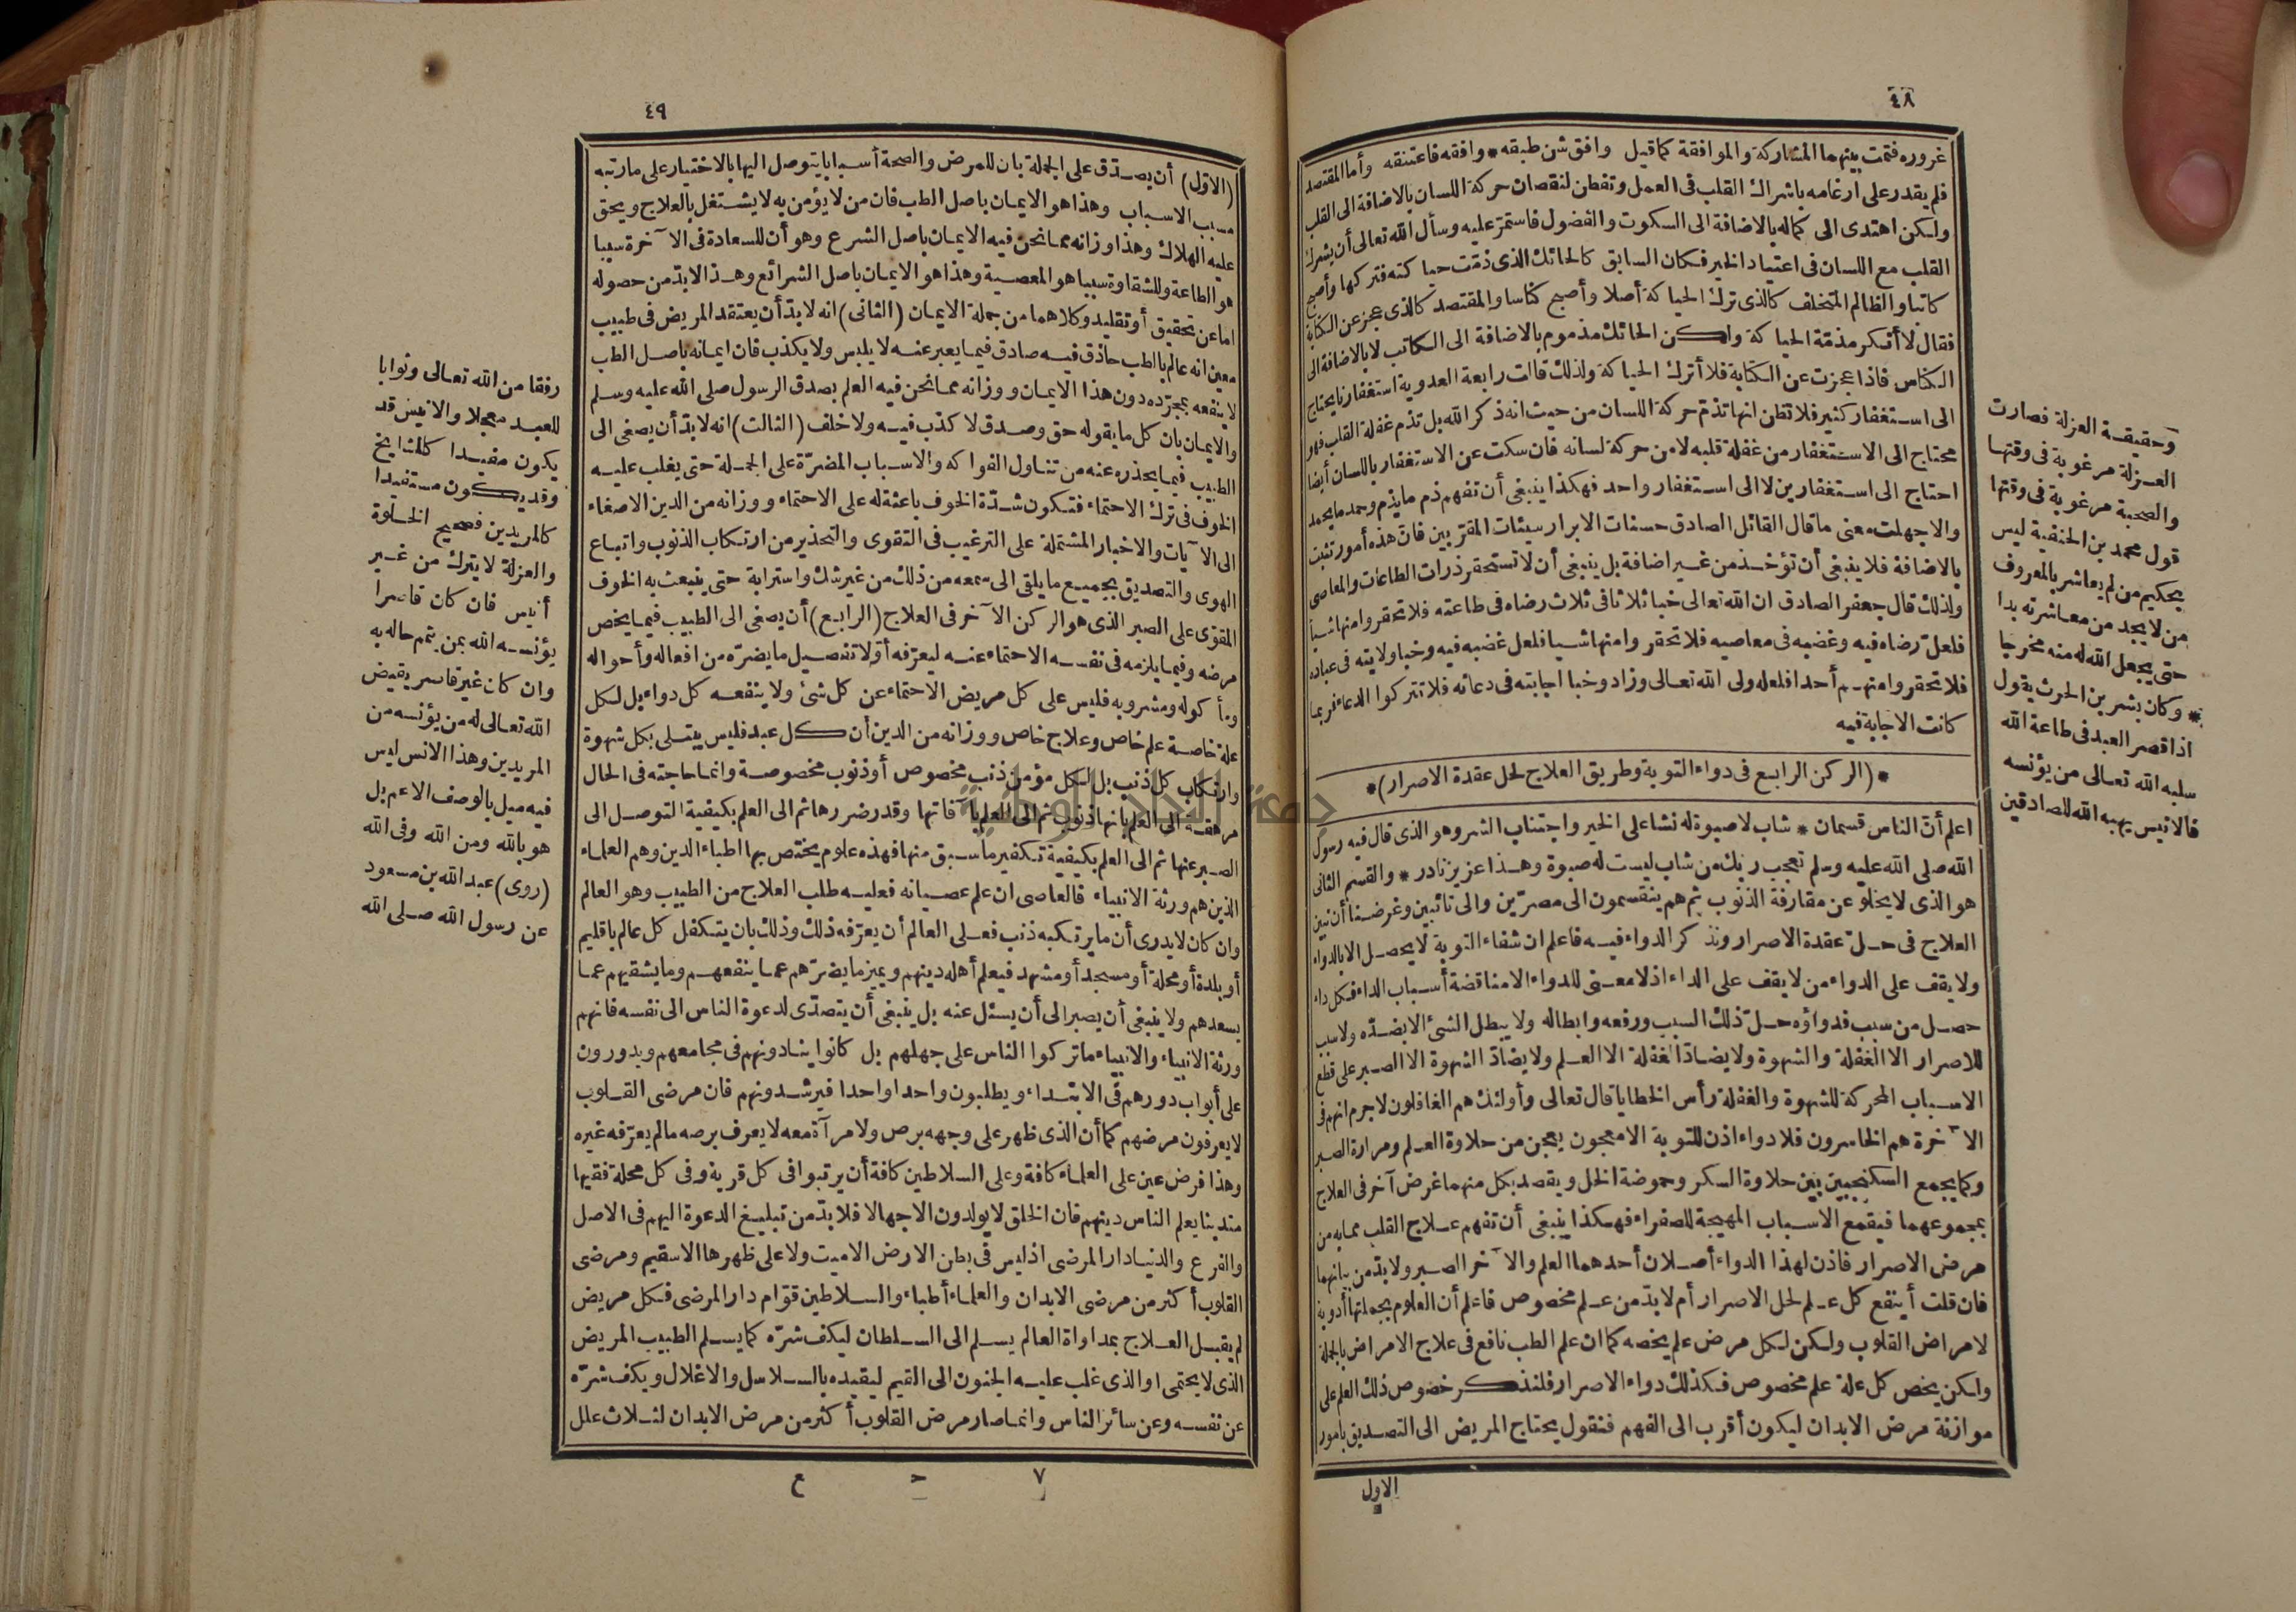 ٤٨
غروره فتمت بينهما المشاركة والموافقة كما قيل وافق شن طبقه * وافقه فاعتنقه وأما المقتصد
فلم يقدر على ارغامه باشراك القلب فى العمل وتفطن لنقصان حركة اللسان بالاضافة الى القلب
ولكن اهتدى الى كماله بالاضافة الى السكوت والفضول فاستمر عليه وسأل الله تعالى أن يشرك
القلب مع اللسان فى اعتياد الخير فكان السابق كالحائك الذى ذمّت حياكته فتركها وأصبح
كاتبا والظالم المتخلف كالذى ترك الحياكة أصلا وأصبح كناسا والمقتصد كالذى عجز عن الكتابة
فقال لا أنكر مذمّة الحياكة ولكن الحائك مذموم بالاضافة الى الكاتب لا بالاضافة الى
الكناس فاذا عجزت عن الكتابة فلا أترك الحياكة ولذلك قالت رابعة العدوية استغفارنا يحتاج
الى استغفار كثير فلا تظن انها تذمّ حركة اللسان من حيث انه ذكر الله بل تذم غفلة القلب فهو
محتاج الى الاستغفار من غفلة قلبه لا من حركة لسانه فان سكت عن الاستغفار باللسان أيضا
احتاج الى استغفارين لا الى استغفار واحد فهكذا ينبغى أن تفهم ذم ما يذم وحمد ما يحمد
والا جهلت معنى ما قال القائل الصادق حسنات الابرار سيئات المقرّبين فانّ هذه أمور تثبت
بالاضافة فلا ينبغى أن تؤخذ من غير اضافة بل ينبغى أن لا تستحقر ذرات الطاعات والمعاصى
ولذلك قال جعفر الصادق ان الله تعالى خبأ ثلاثا فى ثلاث رضاه فى طاعته فلا تحقروا منها شيأ
فلعلّ رضاه فيه وغضبه فى معاصيه فلا تحقروا منها شيا فلعل غضبه فيه وخبا ولايته فى عباده
فلا تحقروا منهم أحدا فلعله ولى الله تعالى وزاد وخبا اجابته فى دعائه فلا تتركوا الدعاء فربما
كانت الاجابة فيه
* (الركن الرابع فى دواء التوبة وطريق العلاج لحل عقدة الاصرار) *
اعلم أنّ الناس قسمان * شاب لا صبوة له نشا على الخير واجتناب الشر وهو الذى قال فيه رسول
الله صلى الله عليه وسلم تعجب ربك من شاب ليست له صبوة وهذا عزيز نادر * والقسم الثانى
هو الذى لا يخلو عن مقارفة الذنوب ثم هم ينقسمون الى مصرّين والى تائبين وغرضنا أن نبين
العلاج فى حلّ عقدة الاصرار ونذكر الدواء فيه فاعلم ان شفاء التوبة لا يحصل الا بالدواء
ولا يقف على الدواء من لا يقف على الداء اذ لا معنى للدواء الا مناقضة أسباب الداء فكل داء
حصل من سبب فدواؤه حلّ ذلك السبب ورفعه وابطاله ولا يبطل الشئ الا بضدّه ولا سبب
للاصرار الا الغفلة والشهوة ولا يضادّ الغفلة الا العلم ولا يضادّ الشهوة الا الصبر على قطع
الاسباب المحركة للشهوة والغفلة رأس الخطايا قال تعالى وأولئك هم الغافلون لا جرم انهم فى
الآخرة هم الخاسرون فلا دواء اذن للتوبة الا معجون يعجن من حلاوة العلم ومرارة الصبر
وكما يجمع السكنجبين بين حلاوة السكر وحموضة الخل ويقصد بكل منهما غرض آخر فى العلاج
بمجموعهما فيقمع الاسباب المهيجة للصفراء فهكذا ينبغى أن تفهم علاج القلب مما به من
مرض الاصرار فاذن لهذا الدواء أصلان أحدهما العلم والآخر الصبر ولا بدّ من بيانهما
فان قلت أينفع كل علم لحل الاصرار أم لا بدّ من علم مخصوص فاعلم أن العلوم بجملتها أدوية
لامراض القلوب ولكن لكل مرض علم يخصه كما ان علم الطب نافع فى علاج الامراض بالجملة
ولكن يخص كل علة علم مخصوص فكذلك دواء الاصرار فلنذكر خصوص ذلك العلم على
موازنة مرض الابدان ليكون أقرب الى الفهم فنقول يحتاج المريض الى التصديق بامور
الاول
وحقيقة العزلة فصارت
العزلة مرغوبة فى وقتها
والصحبة مرغوبة فى وقتها
قول محمد بن الحنفية ليس
بحكيم من لم يعاشر بالمعروف
من لا يجد من معاشرته بدا
حتى يجعل الله له منه مخرجا
* وكان بشر بن الحرث يقول
اذا قصر العبد فى طاعة الله
سلبه الله تعالى من يؤنسه
فالانيس يهبه الله للصادقين
٤٩
(الاوّل) أن يصدّق على الجملة بان للمرض والصحة أسبابا يتوصل اليها بالاختيار على ما رتبه
مسبب الاسباب وهذا هو الايمان باصل الطب فان من لا يؤمن به لا يشتغل بالعلاج ويحق
عليه الهلاك وهذا وزانه مما نحن فيه الايمان باصل الشرع وهو أن للسعادة فى الآخرة سببا
هو الطاعة وللشقاوة سببا هو المعصية وهذا هو الايمان باصل الشرائع وهذا لا بدّ من حصوله
اما عن تحقيق أو تقليد وكلاهما من جملة الايمان (الثانى) انه لا بدّ أن يعتقد المريض فى طبيب
معين انه عالم بالطب حاذق فيه صادق فيما يعبر عنه لا يلبس ولا يكذب فان ايمانه باصل الطب
لا ينفعه بمجرّده دون هذا الايمان ووزانه مما نحن فيه العلم بصدق الرسول صلى الله عليه وسلم
والايمان بان كل ما يقوله حق وصدق لا كذب فيه ولا خلف (الثالث) انه لا بدّ أن يصغى الى
الطبيب فيما يحذره عنه من تناول الفواكه والاسباب المضرّة على الجملة حتى يغلب عليه
الخوف فى ترك الاحتماء فتكون شدّة الخوف باعثة له على الاحتماء ووزانه من الدين الاصغاء
الى الآيات والاخبار المشتملة على الترغيب فى التقوى والتحذير من ارتكاب الذنوب واتباع
الهوى والتصديق بجميع ما يلقى الى سمعه من ذلك من غير شك واسترابة حتى ينبعث به الخوف
المقوّى على الصبر الذى هو الركن الآخر فى العلاج (الرابع) أن يصغى الى الطبيب فيما يخص
مرضه وفيما يلزمه فى نفسه الاحتماء عنه ليعرّفه أوّلا تفصيل ما يضرّه من افعاله وأحواله
ومأكوله ومشروبه فليس على كل مريض الاحتماء عن كل شئ ولا ينفعه كل دواء بل لكل
علة خاصة علم خاص وعلاج خاص ووزانه من الدين أن كل عبد فليس يبتلى بكل شهوة
وارتكاب كل ذنب بل لكل مؤمن ذنب مخصوص أو ذنوب مخصوصة وانما حاجته فى الحال
مرهقة الى العلم بانها ذنوب ثم الى العلم بآفاتها وقدر ضررها ثم الى العلم بكيفية التوصل الى
الصبر عنها ثم الى العلم بكيفية تكفير ما سبق منها فهذه علوم يختص بها اطباء الدين وهم العلماء
الذين هم ورثة الانبياء فالعاصى ان علم عصيانه فعليه طلب العلاج من الطبيب وهو العالم
وان كان لا يدرى أن ما يرتكبه ذنب فعلى العالم أن يعرّفه ذلك وذلك بان يتكفل كل عالم باقليم
أو بلدة أو محلة أو مسجد أو مشهد فيعلم أهله دينهم ويميز ما يضرّهم عما ينفعهم وما يشقيهم عما
يسعدهم ولا ينبغى أن يصبر الى أن يسئل عنه بل ينبغى أن يتصدّى لدعوة الناس الى نفسه فانهم
ورثة الانبياء والانبياء ما تركوا الناس على جهلهم بل كانوا ينادونهم فى مجامعهم ويدورون
على أبواب دورهم فى الابتداء ويطلبون واحدا واحدا فيرشدونهم فان مرضى القلوب
لا يعرفون مرضهم كما أن الذى ظهر على وجهه برص ولا مرآة معه لا يعرف برصه ما لم يعرّفه غيره
وهذا فرض عين على العلماء كافة وعلى السلاطين كافة أن يرتبوا فى كل قرية وفى كل محلة فقيها
متدينا يعلم الناس دينهم فان الخلق لا يولدون الا جهالا فلا بدّ من تبليغ الدعوة اليهم فى الاصل
والفرع والدنيا دار المرضى اذ ليس فى بطن الارض الا ميت ولا على ظهرها الا سقيم ومرضى
القلوب أكثر من مرضى الابدان والعلماء أطباء والسلاطين قوّام دار المرضى فكل مريض
لم يقبل العلاج بمداواة العالم يسلم الى السلطان ليكف شرّه كما يسلم الطبيب المريض
الذى لا يحتمى او الذى غلب عليه الجنون الى القيم ليقيده بالسلاسل والاغلال ويكف شرّه
عن نفسه وعن سائر الناس وانما صار مرض القلوب أكثر من مرض الابدان لثلاث علل
٧ ح ع
رفقا من الله تعالى وثوابا
للعبد معجلا والانيس قد
يكون مفيدا كالمشايخ
وقد يكون مستفيدا
كالمريدين فصحيح الخلوة
والعزلة لا يترك من غير
أنيس فان كان قاصرا
يؤنسه الله بمن يتمم حاله به
وان كان غير قاصر يقيض
الله تعالى له من يؤنسه من
المريدين وهذا الانس ليس
فيه ميل بالوصف الاعم بل
هو بالله ومن الله وفى الله
(روى) عبد الله بن مسعود
عن رسول الله صلى الله
جامعة النجاح الوطنية